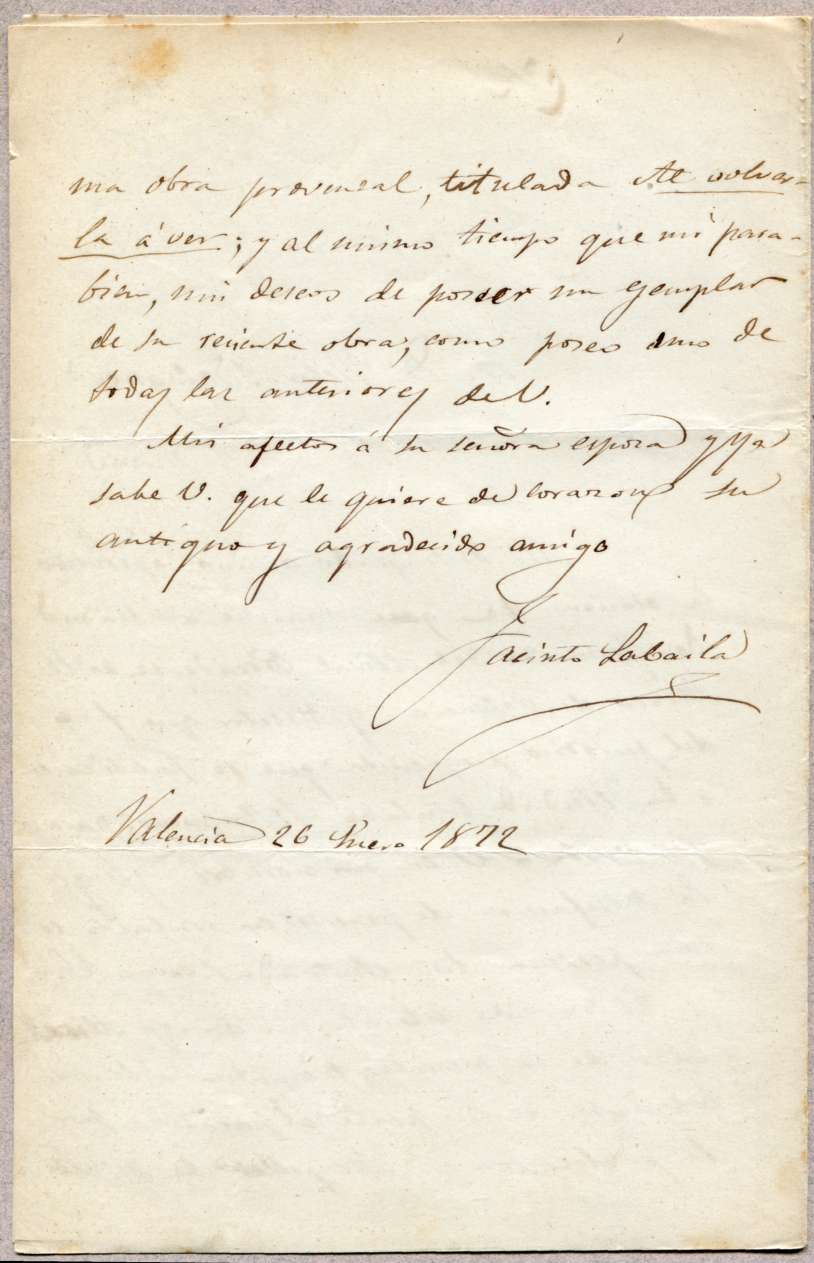 ma obra provenzal, titulada Al volver-
la á ver; y al mismo tiempo que mi para-
bien, mis deseos de poseer un ejemplar
de su reciente obra, como poseo uno de
todas las anteriores de V.
Mis afectos á su señora esposa y ya
sabe V. que le quiere de corazon su
antiguo y agradecido amigo
Jacinto Labaila
Valencia 26 Enero 1872